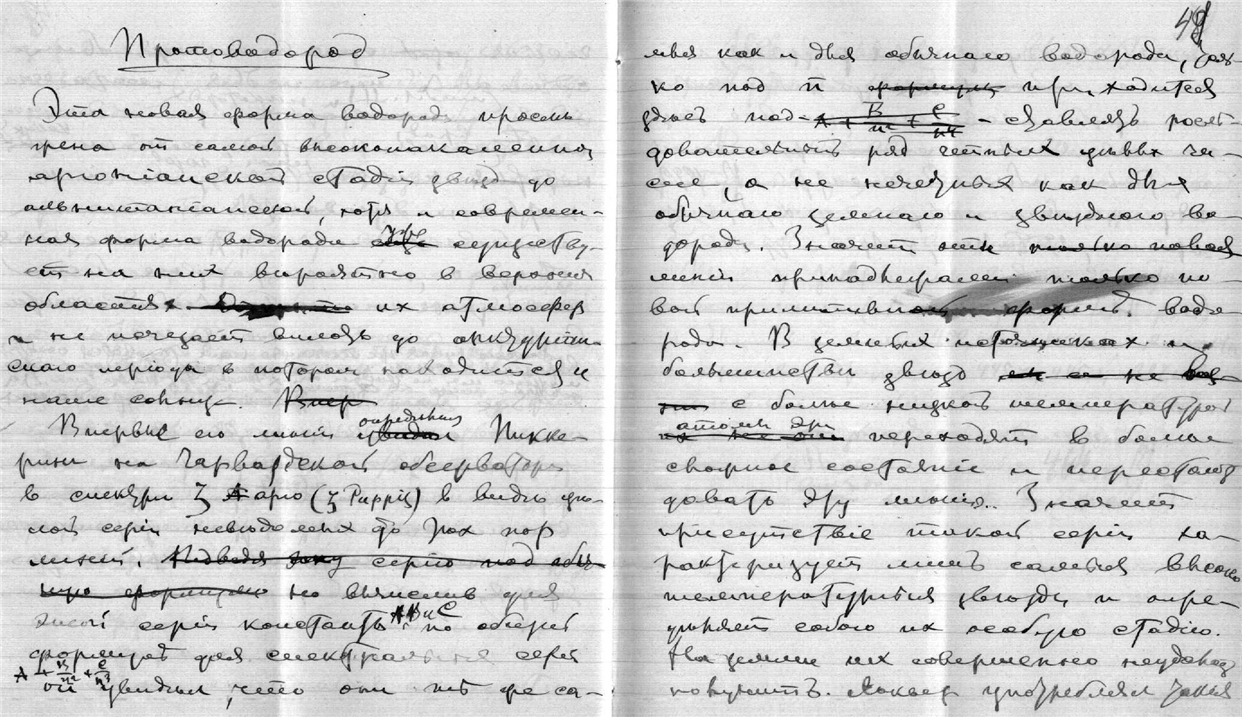 Протоводород
Эта новая форма водорода просмот-
рена от самой высоконакаленной
аргонианской стадіи звезд до
альнитаніанской, хотя и современ-
ная форма водорода уже существу-
ет на них вероятно в верхних
областях их атмосфер
и не исчезает вплоть до
скаго періода в котором находится и
наше солнце.
Впервые его линіи определил Пикке-
ринг на Гарвардской обсерваторіи
в спектре ζ Арго (ζ Puppis) в виде це-
лой серіи неведомых до тех пор
линій. Подведя эту серію под обыч-
ную формулу но вычислив для
этой серіи константы A B и C по общей
формуле для спектральных серій
A + B/m² + C/m⁴
он увидел, что они те же са-
49
мыя как и для обычнаго водорода, толь-
ко под m формулы приходится
здесь под A + B/m² + C/m⁴ ставлять послѣ-
довательный ряд четных целых чи-
сел, а не нечетных как для
обычнаго земнаго и звезднаго во-
дорода. Значит эти только новыя
линіи принадлежали только но-
вой примитивной форме водо-
рода. В земных источниках и
большинстве звезд
с более низкой температурой
атомы эти переходят в более
сложное состояніе и перестают
давать эту линію. Значит
присутствіе такой серіи ха-
рактеризует лишь самыя высоко
температурныя звезды и опре-
деляет собою их особую стадію.
На земле их совершенно неудалось
получить. Локьер употреблял